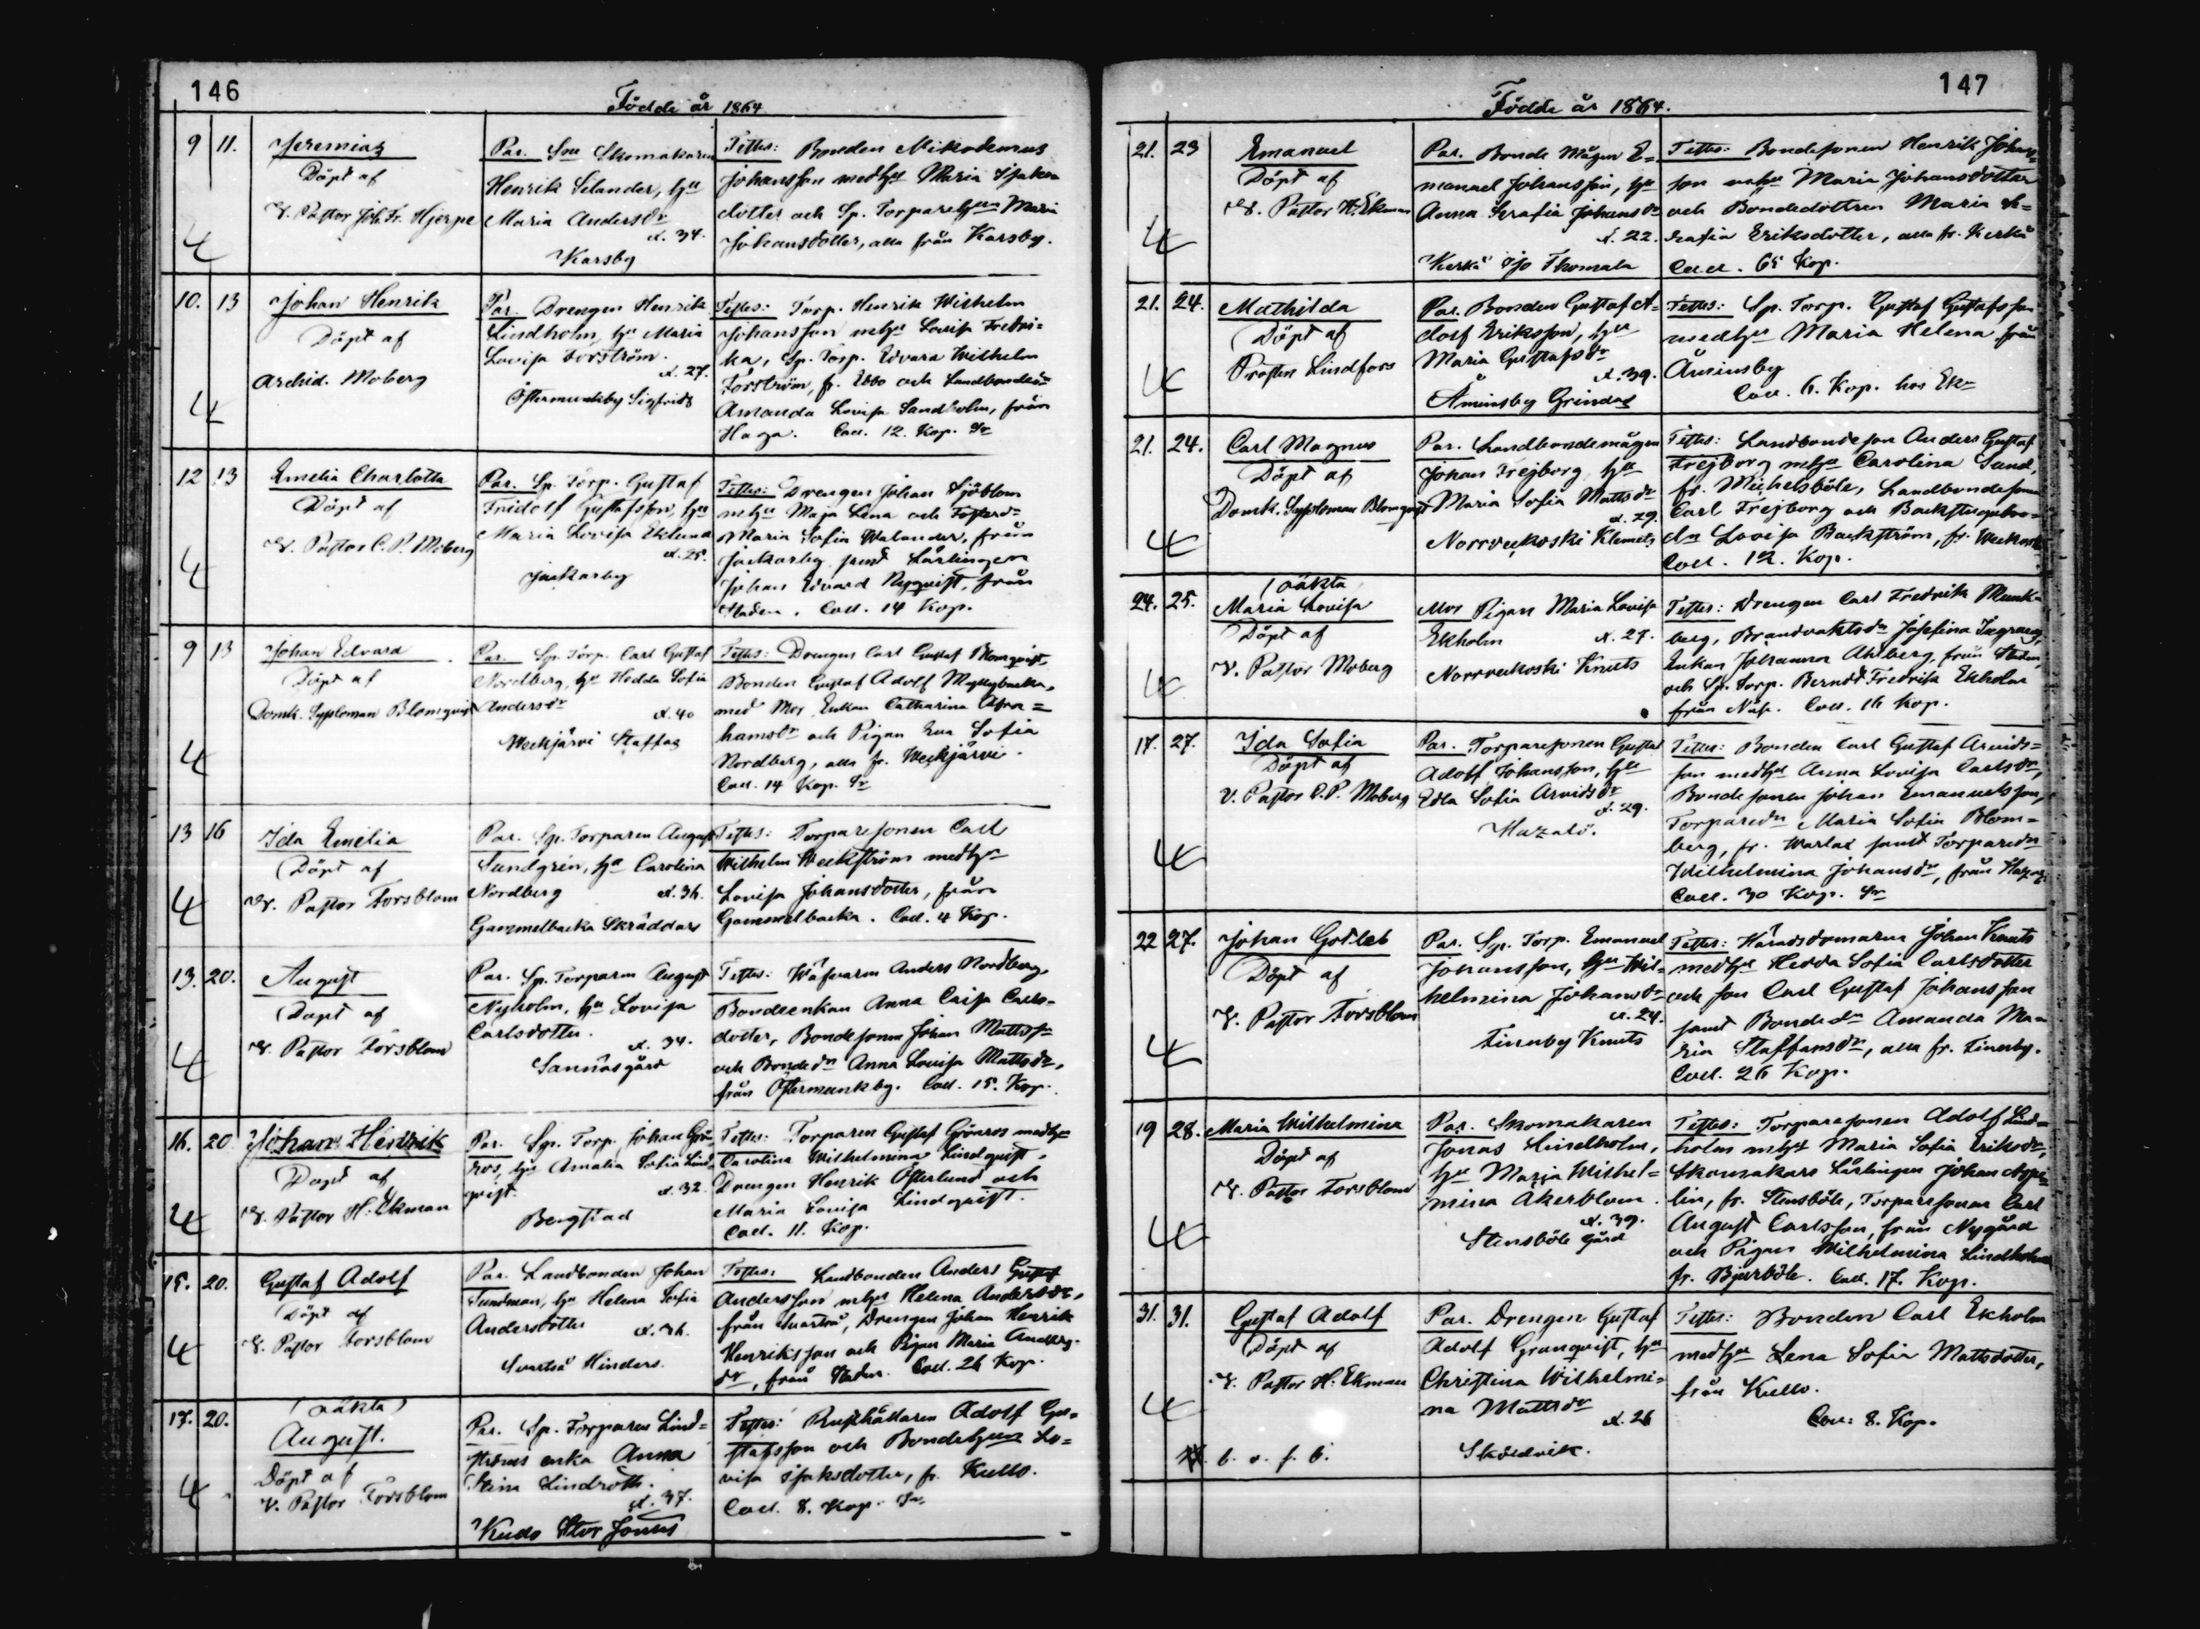 146
Födde år 1864
9 11. Jeremias
Döpt af
V. Pastor Joh. Fr. Hjerpe
Par. Skomakaren
Henrik Selander, hu
Maria Andersdr
ä. 34.
Karsby
Testes: Bonden Nikodemus
Johansson med hu Maria Isaks
dotter och Sp. Torpare hun Maria
Johansdotter, alla från Karsby.
4
10. 13 Johan Henrik
Döpt af
Archid. Moberg
Par. Drengen Henrik
Lindholm, hu Maria
Lovisa Forström.
ä. 27.
Östermunkby Sigfrids
Testes: Torp. Henrik Wilhelm
Johansson m hu Lovisa Fredri=
ka, Sp. Torp. Edvard Wilhelm
Forström, fr. Ebbo och Landbonded=
Amanda Lovisa Sandholm, från
Haga. Coll. 12. Kop. Sr
4
12 13 Emelia Charlotta
Döpt af
V. Pastor C. P. Moberg
Par. Sp. Torp. Gustaf
Fridolf Gustafsson, hu
Maria Lovisa Eklund
ä. 25.
Jackarby
Testes: Drengen Johan Sjöblom
m hu Maja Lena och
Maria Sofia Walander, från
Jackarby samt Lärlingen
Johan Edvard Nyqvist, från
Staden. Coll. 14 Kop.
4
9 13 Johan Edvard
Döpt af
Domk. Syssloman Blomqvist
Par. Sp. Torp. Carl Gustaf
Nordberg, hu Hedda Sofia
Andersdr
ä. 40
Weckjärvi Staffas
Testes: Drengen Carl Gustaf Blomqvist,
Bonden Gustaf Adolf Myllybacka,
med Mor Enkan Catharina Abra=
hamsdr och Pigan Eva Sofia
Nordberg, alla fr. Weckjärvi.
Coll. 14 Kop. Sr
4
13 16 Ida Emelia
Döpt af
V. Pastor Forsblom
Par. Sp. Torparen August
Sundgrén, hu Carolina
Nordberg ä. 36.
Gammelbacka Skräddars
Testes: Torparesonen Carl
Wilhelm Weckström med hu
Lovisa Johansdotter, från
Gammelbacka. Coll. 4 Kop.
4
13. 20. August
Döpt af
V. Pastor Forsblom
Par. Sp. Torparen August
Nyholm, hu Lovisa
Carlsdotter.
ä. 34.
Sannäs gård
Testes: Wäfvaren Anders Nordberg,
Bondeenkan Anna Caisa Carls=
dotter, Bondesonen Johan Mattss=
och Bondedr Anna Lovisa Mattsdr,
från Östermunkby. Coll. 15. Kop.
4
16. 20 Johan Hendrik
Döpt af
V. Pastor H: Ekman
Par. Sp. Torp. Johan Grön=
roos, hu Amalia Sofia Lind=
qvist. ä. 32.
Bengtsad
Testes: Torparen Gustaf Grönroos med hu
Carolina Wilhelmina Lindqvist,
Drengen Henrik Österlund och
Maria Lovisa Lindqvist.
Coll. 11. Kop.
4
15. 20. Gustaf Adolf
Döpt af
V. Pastor Forsblom
Par. Landbonden Johan
Sundman, hu Helena Sofia
Andersdotter ä. 36.
Svartså Hinders.
Testes: Landbonden Anders Gustaf
Andersson m hu Helena Andersdr,
från Svartså, Drengen Johan Henrik
Henriksson och Pigan Maria Anders=
dr, från Staden. Coll. 26 Kop.
4
17. 20. (oäkta)
August.
Döpt af
V. Pastor Forsblom
Par. Sp. Torparen Lind=
ströms enka Anna
Stina Lindroth.
ä. 37.
Kullo Stor Jonas
Testes: Rusthållaren Adolf Gu=
stafsson och Bonde hun Lo=
visa Isaksdotter, fr. Kullo.
Coll. 8. Kop. Sr.
4
147
Födde år 1864.
21. 23 Emanuel
Döpt af
V. Pastor H. Ekman
Par. Bonde mågen E=
manuel Johansson, hu
Anna Serafia Johansdr
ä. 22.
Kerkö Thomala
Testes: Bondesonen Henrik Johans=
son m hu Maria Johansdotter
och Bondedottren Maria Se=
rafia Eriksdotter, alla fr. Kerkö
Coll. 65 Kop.
4
21. 24. Mathilda
Döpt af
Prosten Lindfors
Par. Bonden Gustaf A=
dolf Eriksson, hu
Maria Gustafsdr
ä. 39.
Åminsby Grindas
Testes: Sp. Torp. Gustaf Gustafsson
med hu Maria Helena från
Åminsby
Coll. 6. Kop.
4
21. 24. Carl Magnus
Döpt af
Domk. Syssloman Blomqvist
Par. Landbondemågen
Johan Frejborg, hu
Maria Sofia Mattsdr
ä. 29.
Norrveckoski Klemets
Testes: Landbondeson Anders Gustaf
Frejborg m hu Carolina Sund,
fr. Michelsböle, Landbondesonen
Carl Frejborg och Backstugubo=
dr Lovisa Backström, fr. Weckoski
Coll. 12. Kop.
4
24. 25. (oäkta)
Maria Lovisa
Döpt af
V. Pastor Moberg
Mor Pigan Maria Lovisa
Ekholm ä. 27.
Norrveckoski Knuts
Testes: Drengen Carl Fredrik Munk=
berg, Brandvaktsdr Josefina
Enkan Johanna Ahlberg, från Staden,
och Sp. Torp. Berndt Fredrik Ekholm
från Näse. Coll. 16 Kop.
4
17. 27. Ida Sofia
Döpt af
V. Pastor C. P. Moberg
Par. Torparesonen Gustaf
Adolf Johansson, hu
Edla Sofia Arvidsdr
ä. 29.
Testes: Bonden Carl Gustaf Arvids=
son med hu Anna Lovisa Carlsdr,
Bondesonen Johan Emanuelsson,
Torparedr Maria Sofia Blom=
berg, fr. Warlax samt Torparedr
Wilhelmina Johansdr, från
Coll. 30 Kop. Sr
4
22 27. Johan Gotleb
Döpt af
V. Pastor Forsblom
Par. Sp. Torp. Emanuel
Johansson, hu Wil=
helmina Johansdr
ä. 24.
Tirmby Knuts
Testes: Häradsdomaren Johan Knuts
med hu Hedda Sofia Carlsdotter
och son Carl Gustaf Johansson
samt Bondedr Amanda Ma=
ria Staffansdr, alla fr. Tirmby.
Coll. 26 Kop.
4
19 28. Maria Wilhelmina
Döpt af
V. Pastor Forsblom
Par. Skomakaren
Jonas Lindholm,
hu Maria Wilhel=
mina Åkerblom.
ä. 39.
Stensböle Gård
Testes: Torparesonen Adolf Lind=
holm m hu Maria Sofia Eriksdr,
Skomakare Lärlingen Johan Appe=
lin, fr. Stensböle, Torparesonen Carl
August Carlsson, från Nygård
och Pigan Wilhelmina Lindholm
fr. Bjurböle. Coll. 17. Kop.
4
31. 31. Gustaf Adolf
Döpt af
V. Pastor H. Ekman
Par. Drengen Gustaf
Adolf Granqvist, hu
Christina Wilhelmi=
na Mattsdr
ä. 26
Sköldvik.
Testes: Bonden Carl Ekholm
med hu Lena Sofia Mattsdotter,
från Kullo.
Coll: 8. Kop.
4
6. v. f. 6.